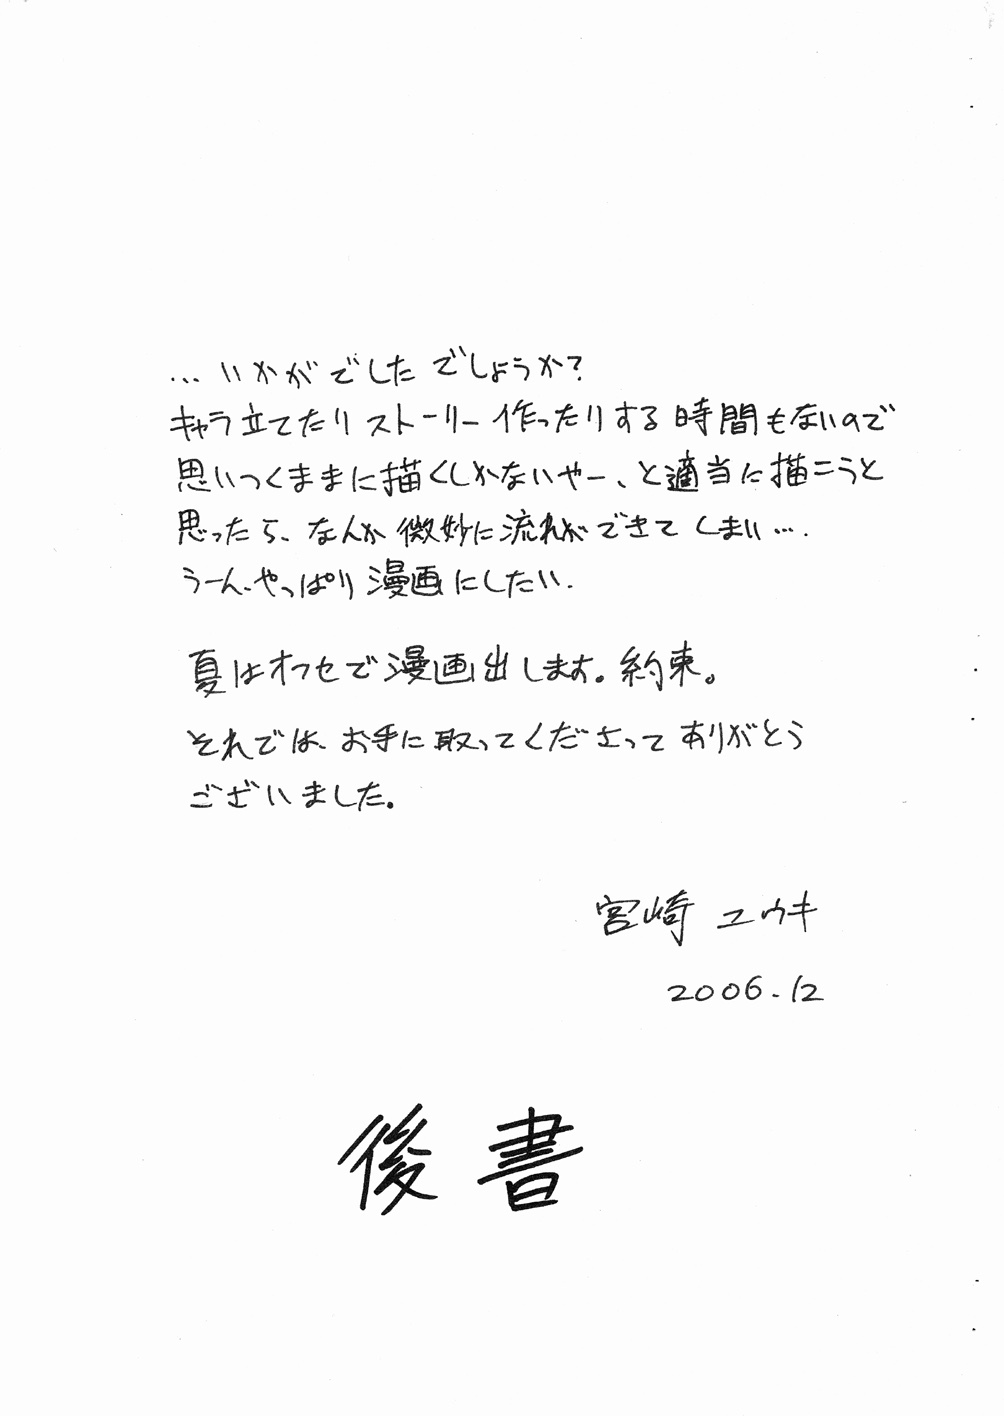 …いかがでしたでしょうか?
キャラ立てたりストーリー作ったりする時間もないので
思いつくままに描くしかないやー、と適当に描こうと
思ったら、なんか微妙に流れができてしまい….
うーん、やっぱり漫画にしたい.
夏はオフセで漫画出します。約束。
それでは、お手に取ってくださってありがとう
ございました。
宮崎 ユウキ
2006.12
後書